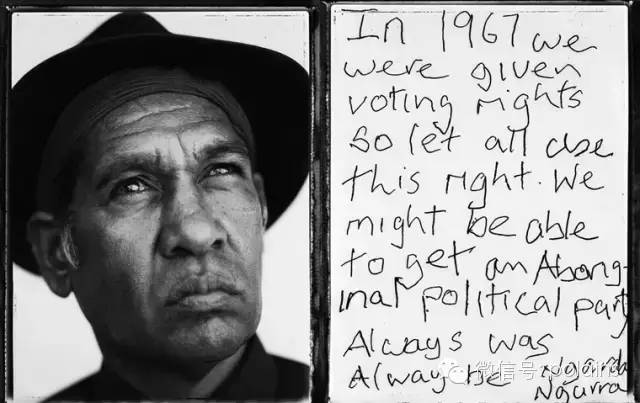 In 1967 we
were given
voting rights
So let all use
this right. We
might be able
to get an Aborig-
inal political party
Always was
Always be Ngurda
Ngurra
微信号: polains